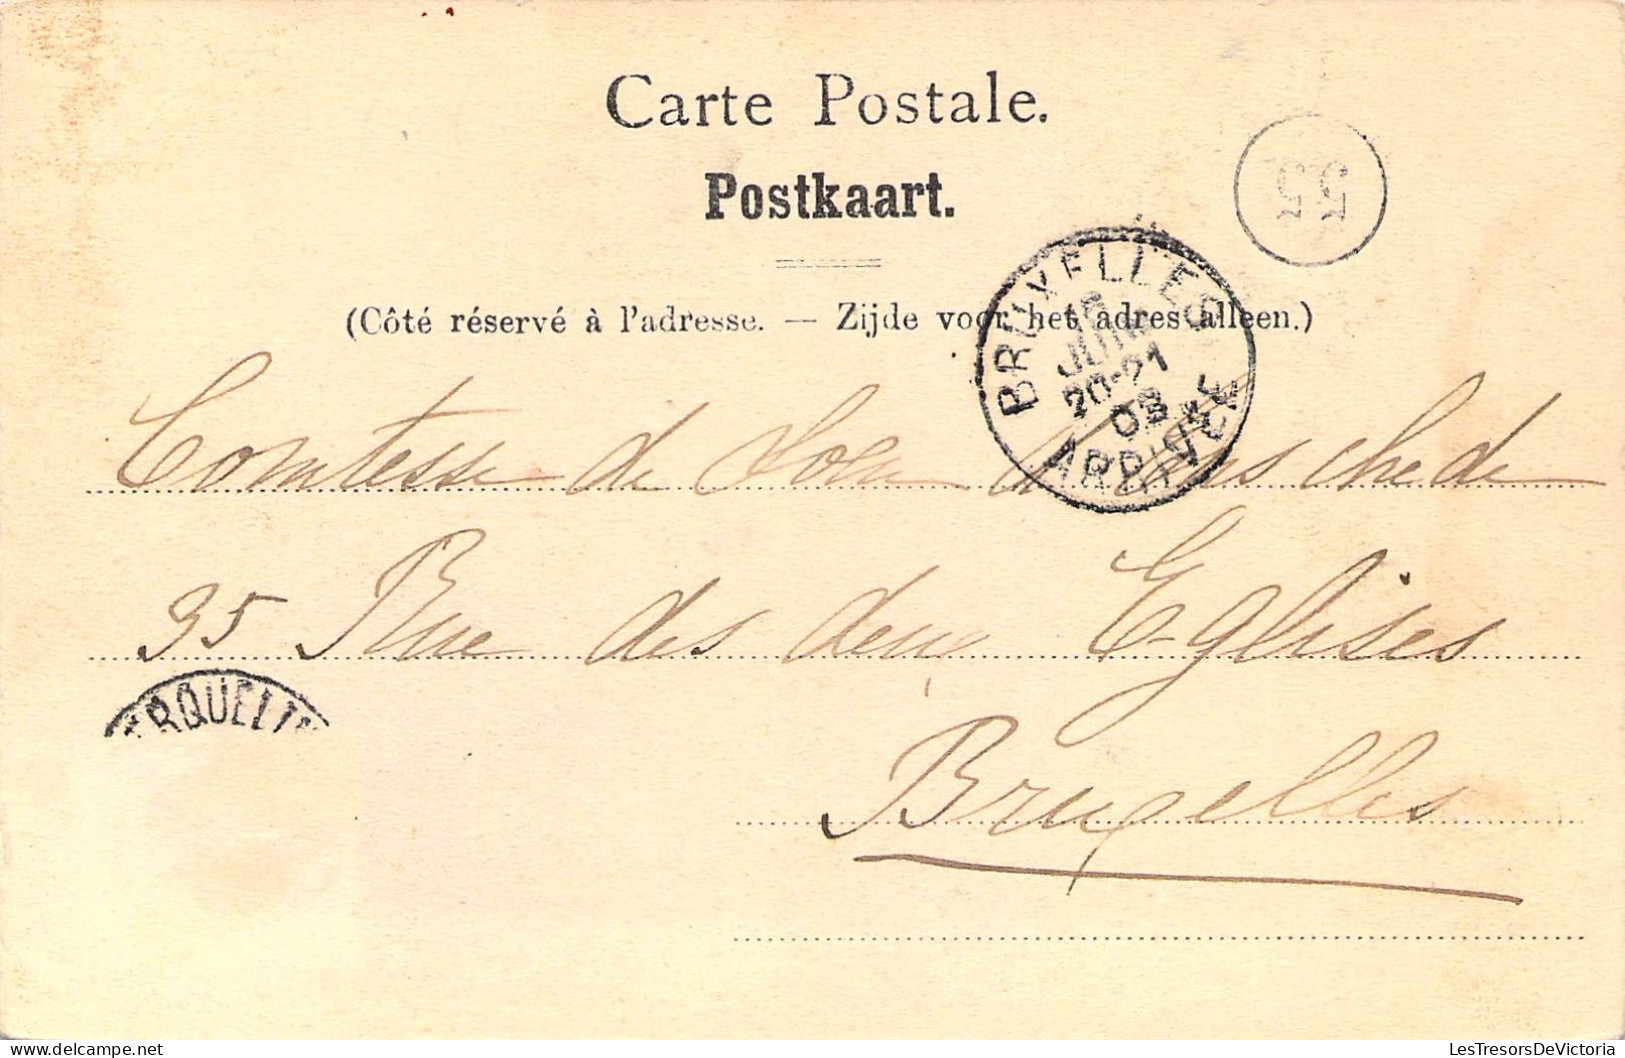 Carte Postale.
Postkaart.
55
(Côté réservé à l'adresse. — Zijde voor het adres alleen.)
BRUXELLES
JUIN
20-21
03
ARRIVÉE
Comtesse de Looz
35 Rue des deux Eglises
ERQUELIN
Bruxelles
LesTresorsDeVictoria